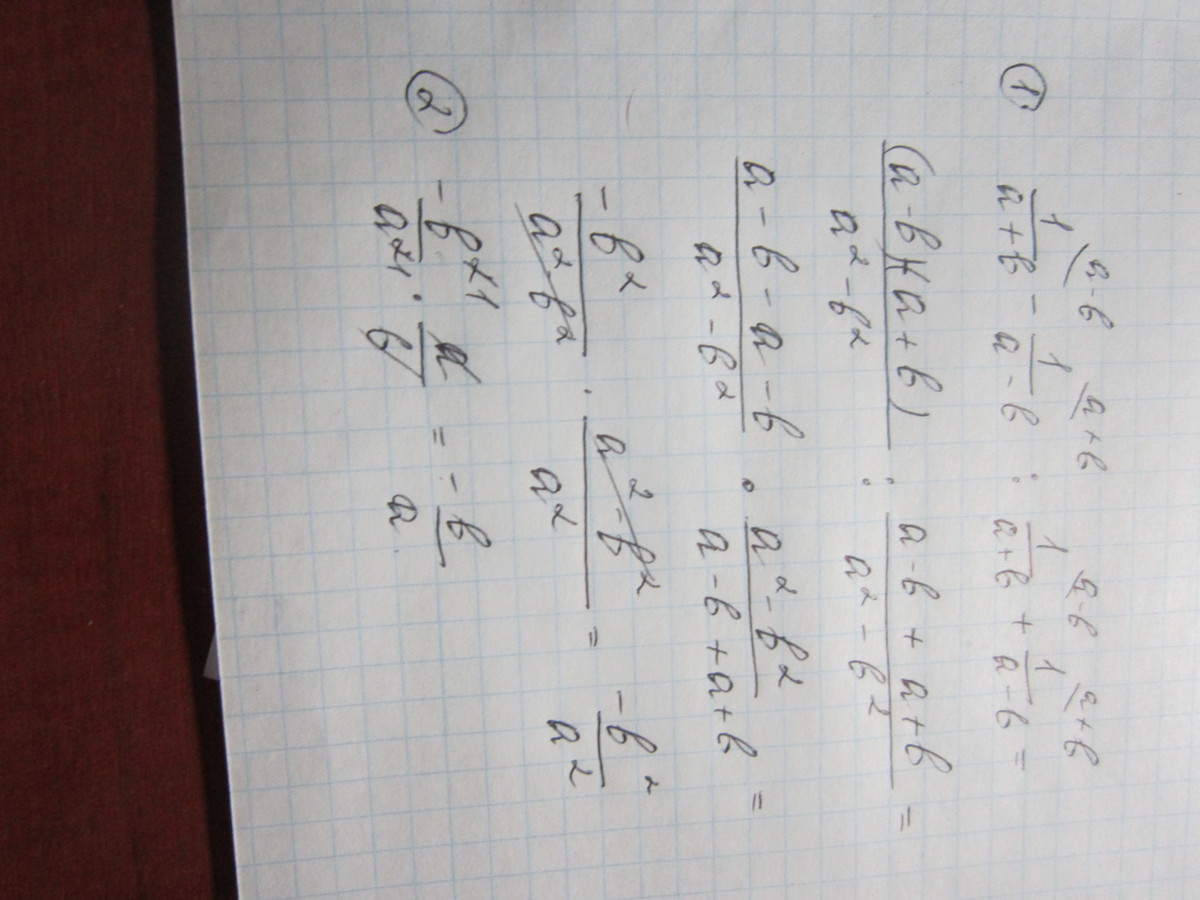 ① 1/(a+b) (a-b − 1/(a-b) (a+b : 1/(a+b) (a-b + 1/(a-b) (a+b =
(a-b)-(a+b)/(a²-b²) : (a-b+a+b)/(a²-b²) =
(a-b-a-b)/(a²-b²) · (a²-b²)/(a-b+a+b) =
-b²/(a²-b²) · (a²-b²)/a² = -b²/a²
② -b²¹/a²¹ · a/b = -b/a